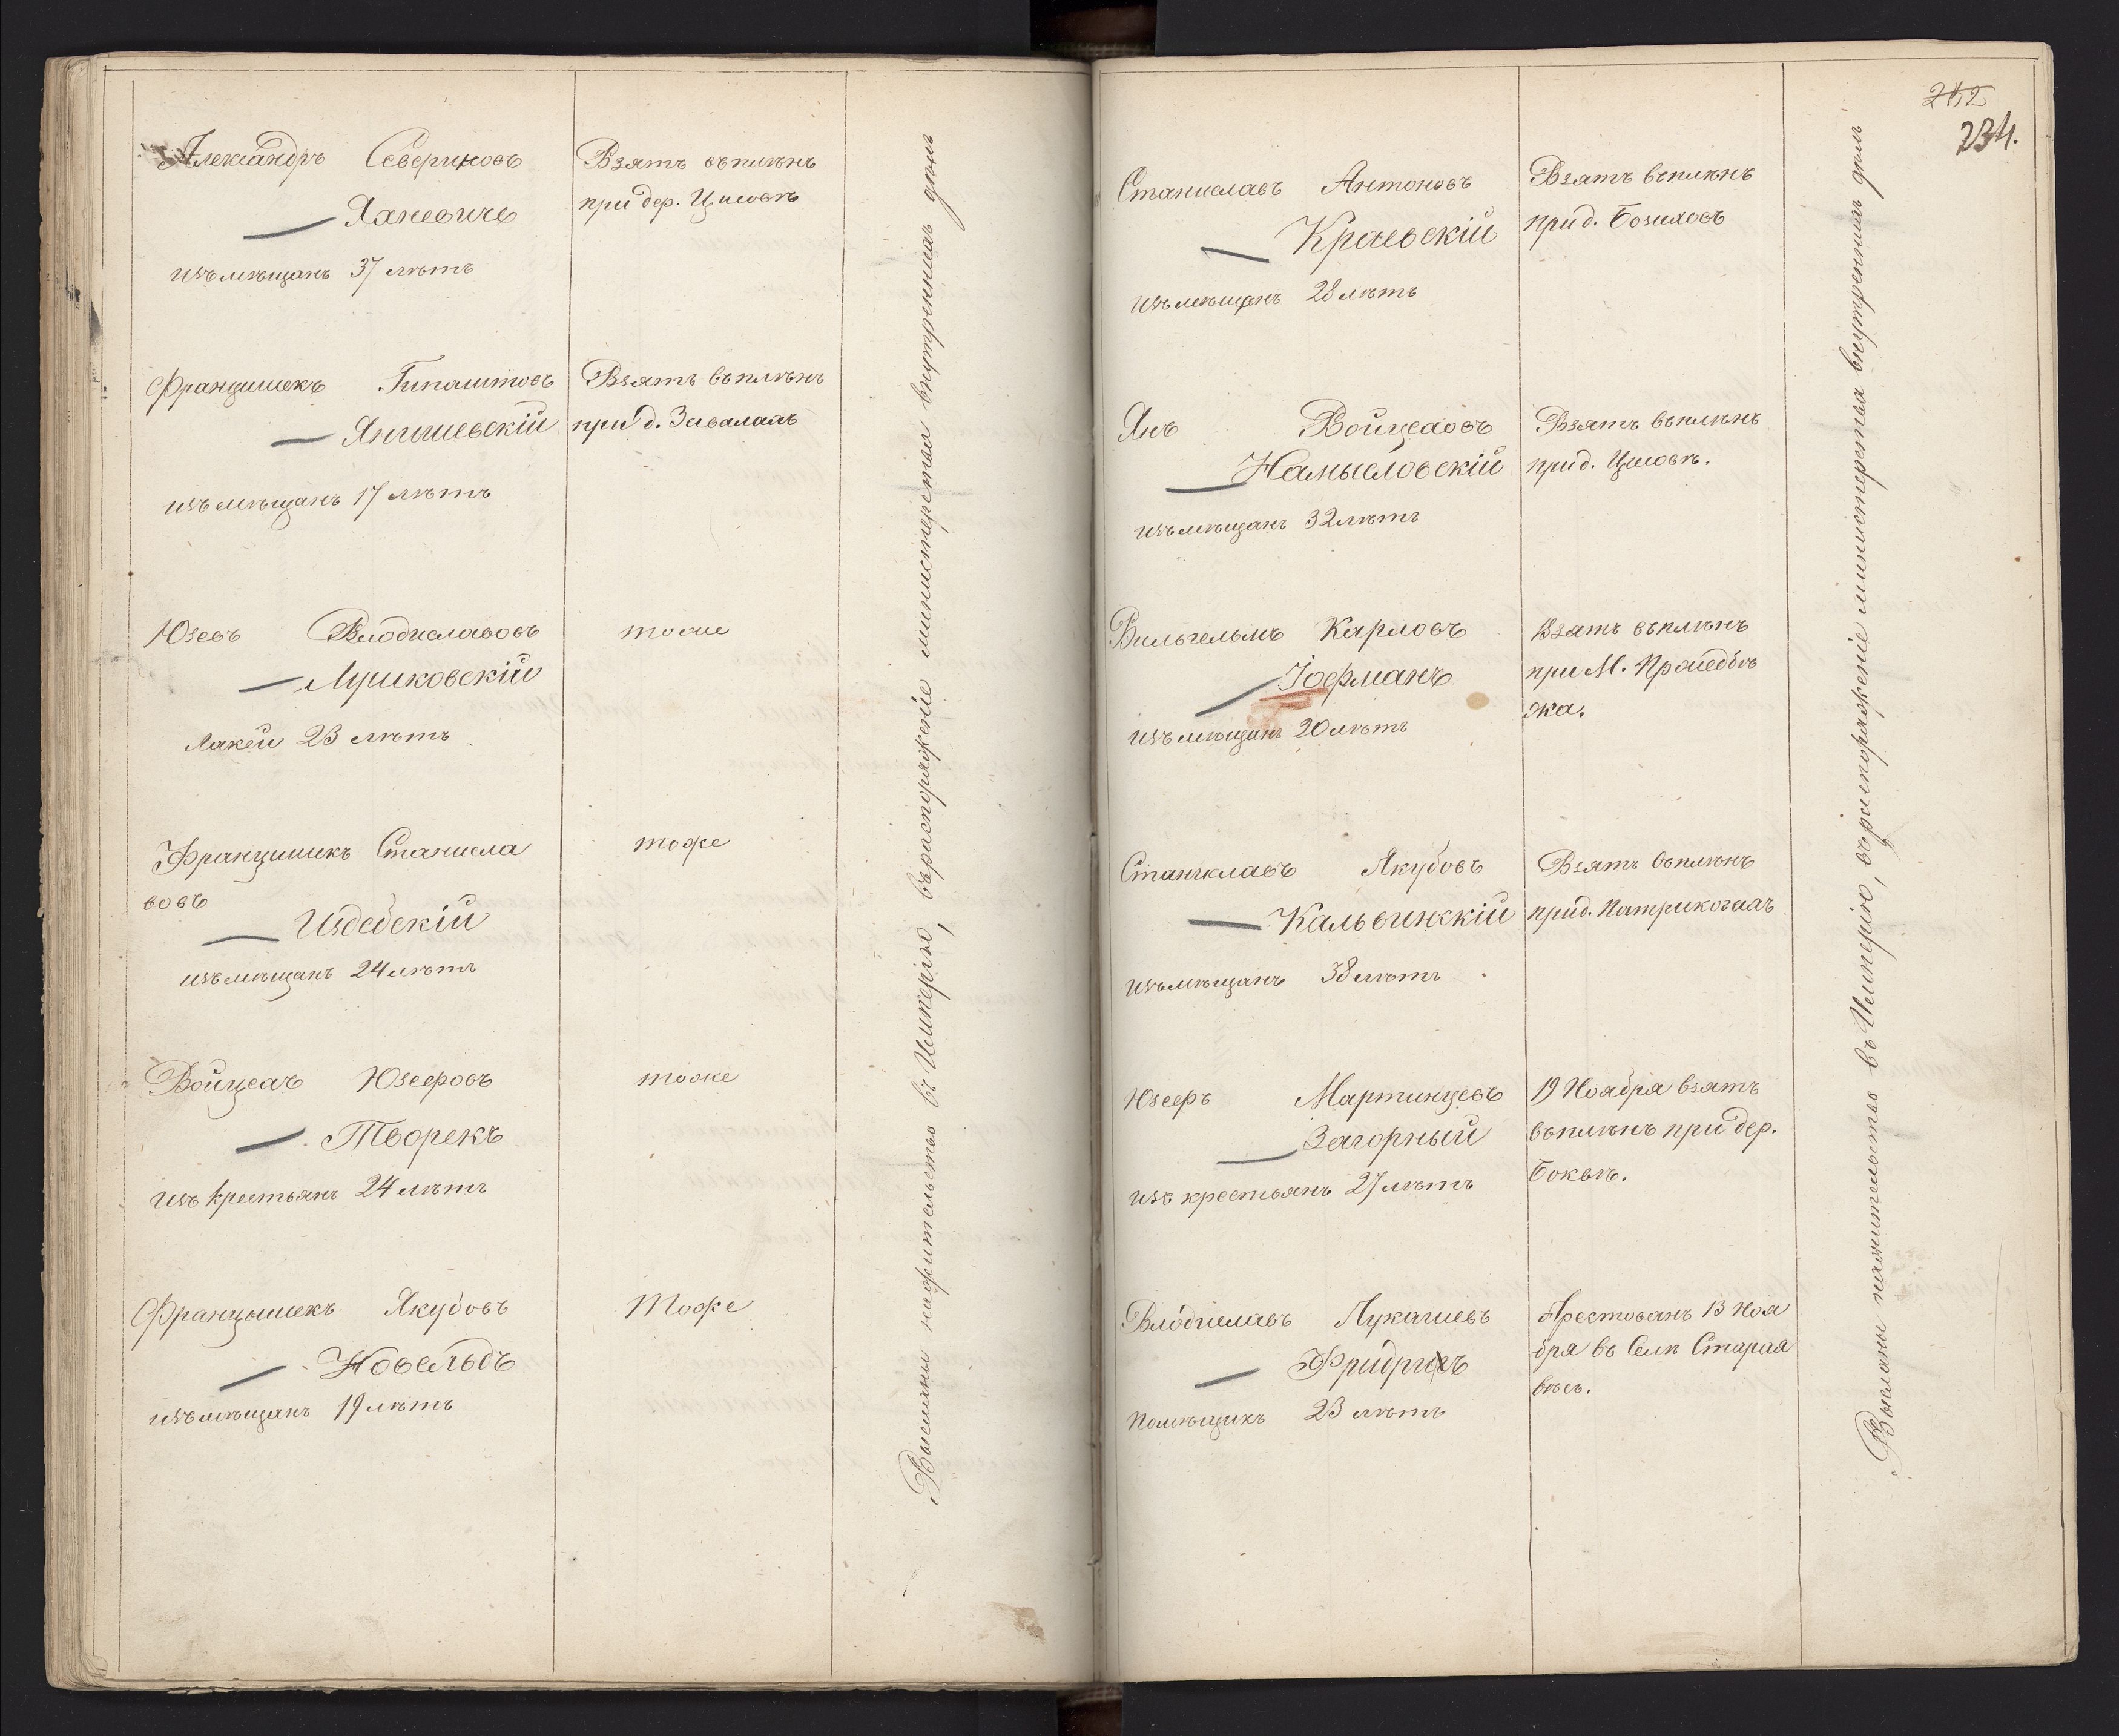 Александръ Севериновъ
Ханевичъ
изъ мѣщанъ 37 лѣтъ
Взятъ въ плѣнъ
при дер. Цисовѣ
Францишекъ Гиполитовъ
Янишевскій
изъ мѣщанъ 17 лѣтъ
Взятъ въ плѣнъ
при д. Завалахъ
Юзевъ Влодиславовъ
Лушковскій
Лакей 23 лѣтъ
тоже
Францишикъ Станисла
вовъ
Издебскій
изъ мѣщанъ 24 лѣтъ
тоже
Войцехъ Юзефовъ
Творекъ
изъ крестьянъ 24 лѣтъ
тоже
Францышекъ Якубовъ
Новельдъ
изъ мѣщанъ 19 лѣтъ
тоже
Высланы на жительство въ Имперію, въ распоряженіе министерства внутреннихъ дѣлъ
252
234.
Станиславъ Антоновъ
Краевскій
изъ мѣщанъ 28 лѣтъ
Взятъ въ плѣнъ
при д.
Янъ Войцеховъ
Намысловскій
изъ мѣщанъ 32 лѣтъ
Взятъ въ плѣнъ
при д. Цисовѣ.
Вильгельмъ Карловъ
Іофманъ
изъ мѣщанъ 20 лѣтъ
Взятъ въ плѣнъ
при М. Праедбѣ
жа.
Станиславъ Якубовъ
Кальвинскій
изъ мѣщанъ 38 лѣтъ
Взятъ въ плѣнъ
при д. Патрикогахъ
Юзефъ Мартинцевъ
Загорный
изъ крестьянъ 27 лѣтъ
19 Ноября взятъ
въ плѣнъ при дер.
Боквѣ.
Влодиславъ Лукашевъ
Фридрихъ
Помѣщикъ 23 лѣтъ
Арестованъ 13 Ноя
бря въ Селѣ Старая
вѣсь.
Высланы на жительство въ Имперію, въ распоряженіе министерства внутреннихъ дѣлъ